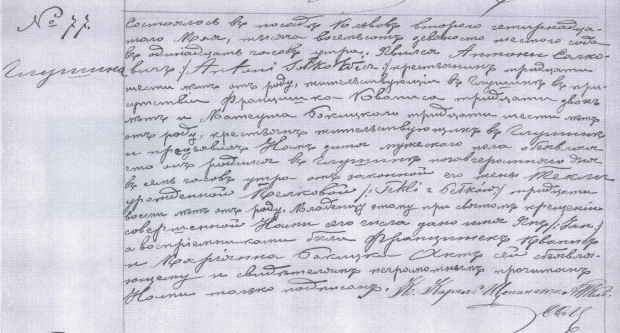 № 77.
Глушина
Состоялось въ посадѣ Кльвовъ второго четырнадца-
таго Мая, тысяча восемьсотъ девяносто шестого года
въ одинадцать часовъ утра. Явился Антони
/: Antoni :/ крестьянинъ тридцати
шести лѣтъ отъ роду, жительствующій въ Глушинѣ въ при-
сутствіи Францишка Кваписа тридцати двухъ
лѣтъ и Матеуша Бакицкаго тридцати шести лѣтъ
отъ роду, крестьянъ жительствующихъ въ Глушинѣ
и предъявилъ Намъ дитя мужескаго пола объявляя
что онъ родился въ Глушинѣ позавчерашняго дня
въ семь часовъ утра отъ законной его жены Теклы
урожденной /: Tekli z :/ тридцати
лѣтъ отъ роду. Младенцу этому при святомъ крещеніи
совершенномъ Нами сего числа дано имя Янъ /: Jan :/
а воспріемниками были Францишекъ Квапис
и Марьянна Бакицка. Актъ сей объявля-
ющему и свидѣтелямъ неграмотнымъ прочитанъ
Нами только подписанъ. Кс.